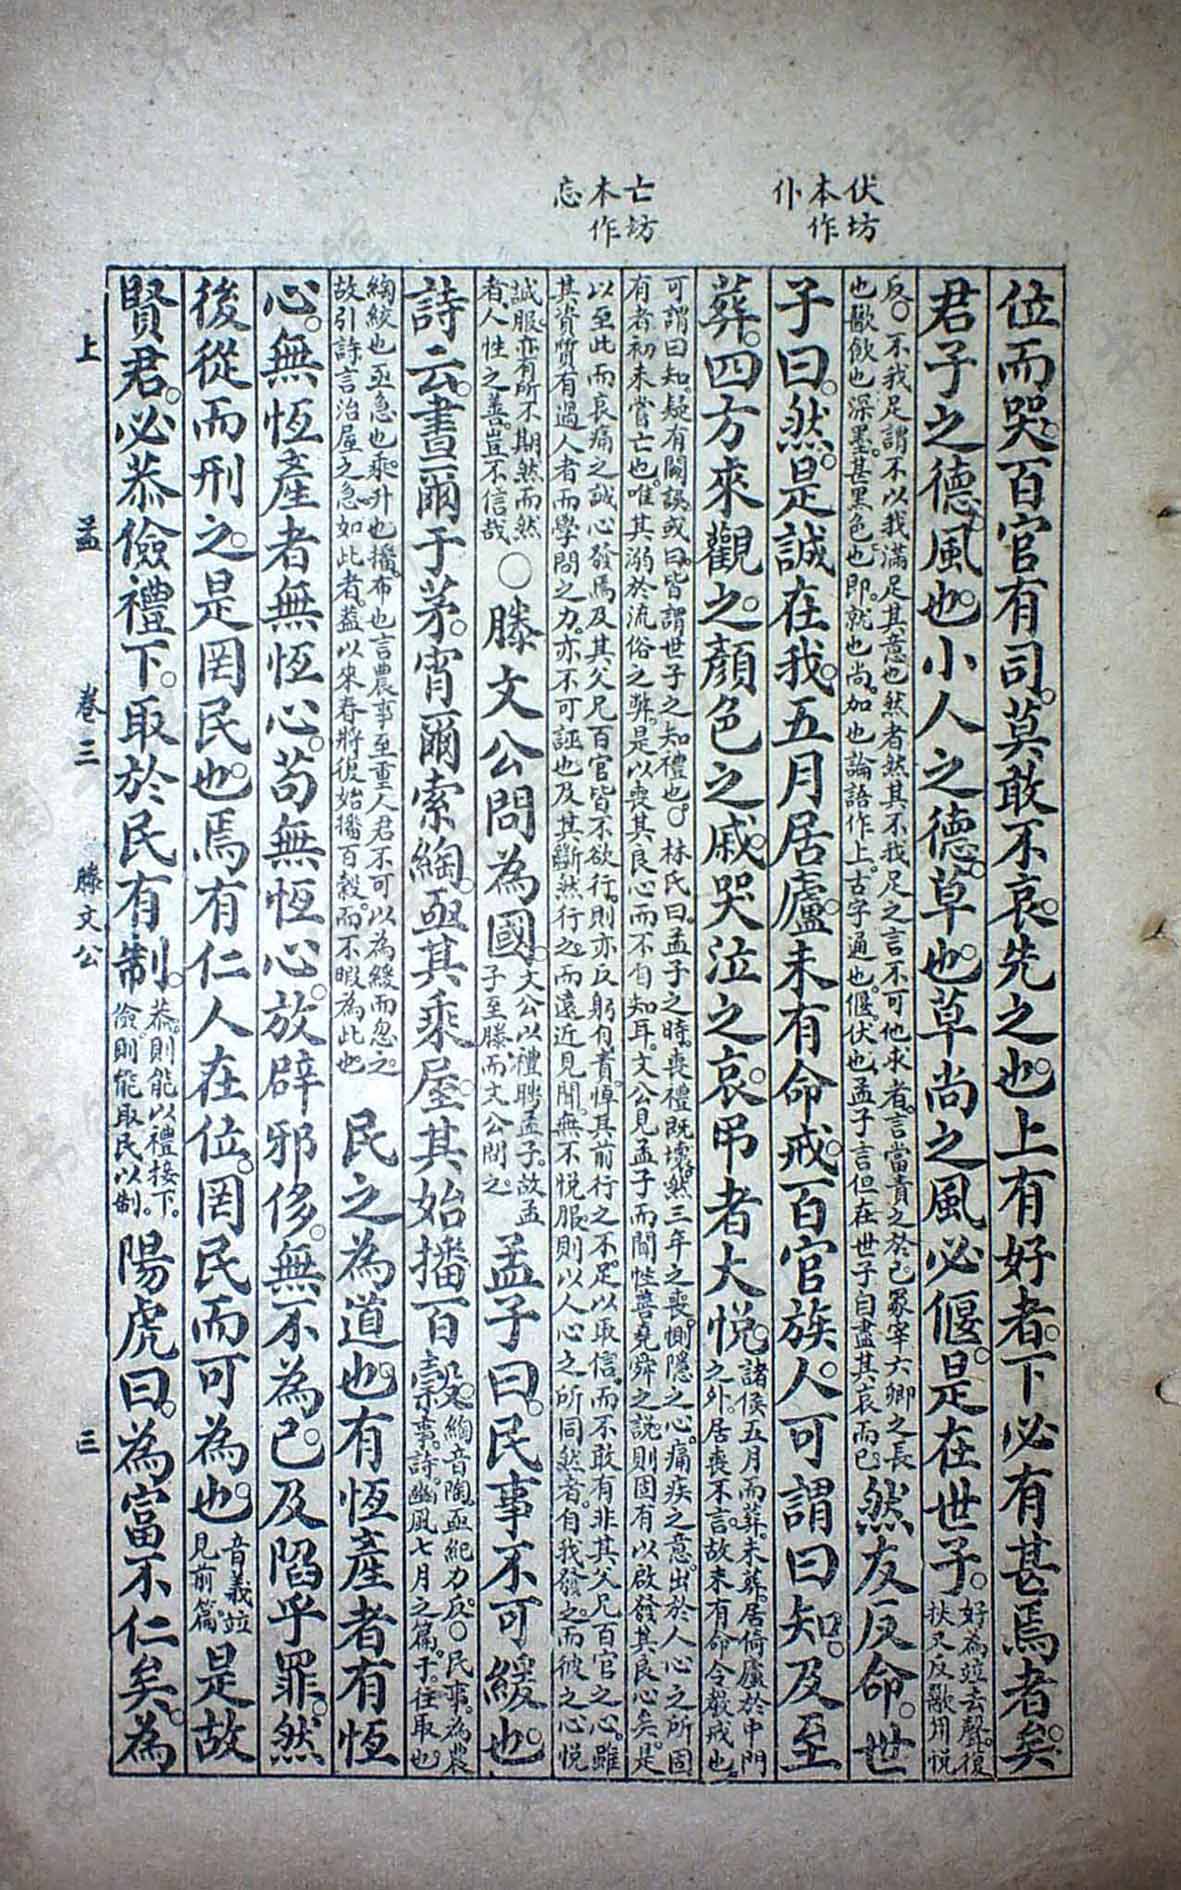 伏坊
本作
仆
亡坊
本作
忘
位而哭。百官有司。莫敢不哀。先之也。上有好者。下必有甚焉者矣。
君子之德。風也。小人之德。草也。草尚之風必偃。是在世子。好為並去聲。復
扶又反。歠川悅
反。○不我足謂不以我滿足其意也然者然其不我足之言不可他求者。言當責之於己。冢宰六卿之長
也歠飲也深墨。甚黑色也即。就也尚。加也論語作上。古字通也。偃。伏也。孟子言但在世子自盡其哀而已。然友反命。世
子曰。然。是誠在我。五月居廬。未有命戒。百官族人。可謂曰知。及至
葬。四方來觀之。顏色之戚。哭泣之哀。弔者大悅。諸侯五月而葬。未葬。居倚廬於中門
之外。居喪不言。故未有命令教戒也。
可謂曰知。疑有闕誤。或曰。皆謂世子之知禮也。○林氏曰。孟子之時。喪禮既壞。然三年之喪。惻隱之心。痛疾之意。出於人心之所固
有者。初未嘗亡也。唯其溺於流俗之弊。是以喪其良心而不自知耳。文公見孟子而聞性善堯舜之說。則固有以啟發其良心矣。是
以至此而哀痛之誠心發焉。及其父兄百官皆不欲行。則亦反躬自責。悼其前行之不足以取信。而不敢有非其父兄百官之心。雖
其資質有過人者。而學問之力。亦不可誣也。及其斷然行之。而遠近見聞。無不悅服。則以人心之所同然者。自我發之。而彼之心悅
誠服。亦有所不期然而然
者。人性之善。豈不信哉○滕文公問為國。文公以禮聘孟子。故孟
子至滕而文公問之。孟子曰。民事不可緩也。
詩云。晝爾于茅。宵爾索綯。亟其乘屋。其始播百穀。綯音陶。亟紀力反。○民事。為農
事。詩。豳風七月之篇。于。往取也。
綯。絞也。亟。急也。乘。升也。播。布也。言農事至重。人君不可以為緩而忽之。
故引詩言治屋之急如此者。蓋以來春將復始播百穀。而不暇為此也。民之為道也。有恆產者有恆
心。無恆產者無恆心。苟無恆心。放辟邪侈。無不為已。及陷乎罪。然
後從而刑之。是罔民也。焉有仁人在位。罔民而可為也。音義並
見前篇。是故
賢君。必恭儉禮下。取於民有制。恭。則能以禮接下。
儉。則能取民以制。陽虎曰。為富不仁矣。為
上孟 卷三 滕文公 三